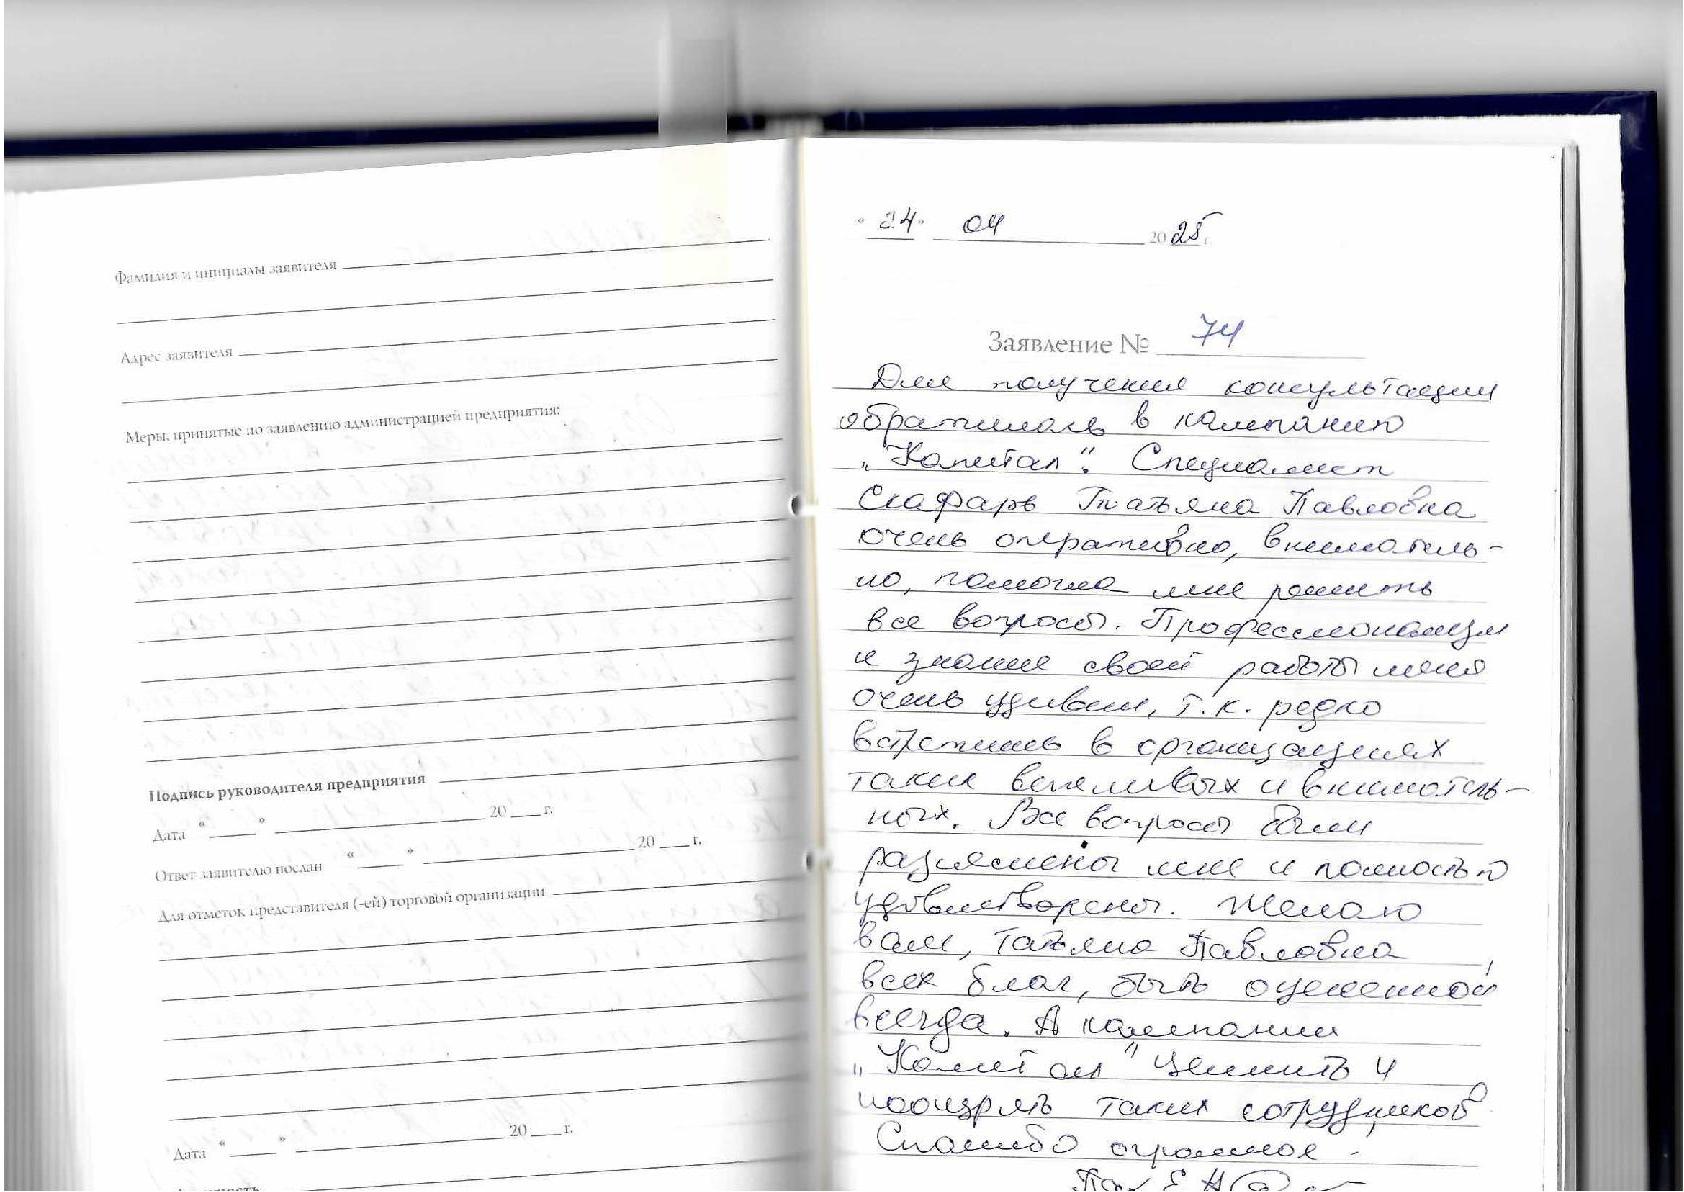 Фамилия и инициалы заявителя
Адрес заявителя
Меры, принятые по заявлению администрацией предприятия:
Подпись руководителя предприятия
Дата “ ” 20 г.
Ответ заявителю послан “ ” 20 г.
Для отметок представителя (-ей) торговой организации
Дата “ ” 20 г.
“ 24 ” 04 2025 г.
Заявление № 74
Для получения консультации
обратилась в компанию
„Капитал“. Специалист
Скафарь Татьяна Павловна
очень оперативно, вниматель-
но, помогла мне решить
все вопросы. Профессионализм
и знание своей работы меня
очень удивили, т.к. редко
встретишь в организациях
таких вежливых и вниматель-
ных. Все вопросы были
разъяснены мне и полностью
удовлетворены. Желаю
вам, Татьяна Павловна,
всех благ, быть оцененной
всегда. А компании
„Капитал“ ценить и
поощрять таких сотрудников
Спасибо огромное